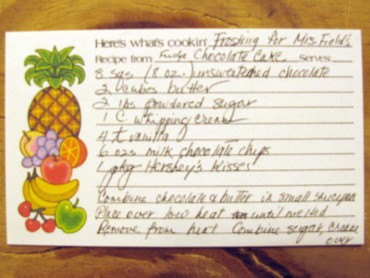 Here's what's cookin' Frosting for Mrs. Field's
Recipe from Fudge Chocolate Cake. Serves
8 sqs (8 oz.) unsweetened chocolate
2 cubes butter
2 lbs powdered sugar
1 C whipping cream
4 t vanilla
6 ozs milk chocolate chips
1 pkg Hershey's Kisses
Combine chocolate & butter in small saucepan
Place over low heat until melted
Remove from heat Combine sugar, cream
over